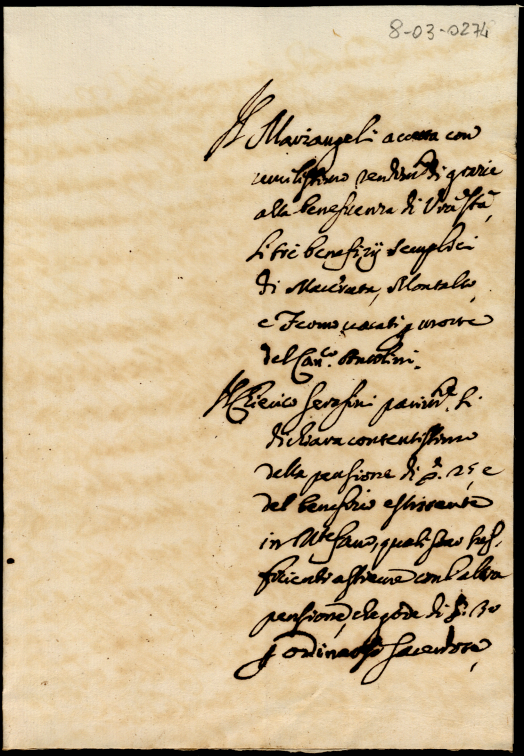 8-03-0274
Il Mariangeli accetta con
umilissimo rendim.to di grazie
alla beneficenza di V'ra S.tà
li tre benefizij semplici
di Macerata, Montalto,
e Fermo vacati p morte
del Can.co Antolini.
Il Chierico Serafini parim.te si
dichiara contentissimo
della pensione di 25, e
del beneficio esistente
in M.te Fano, quali sono suf-
ficienti assieme con l'altra
pensione, che gode di 30
p ordinarsi sacerdote